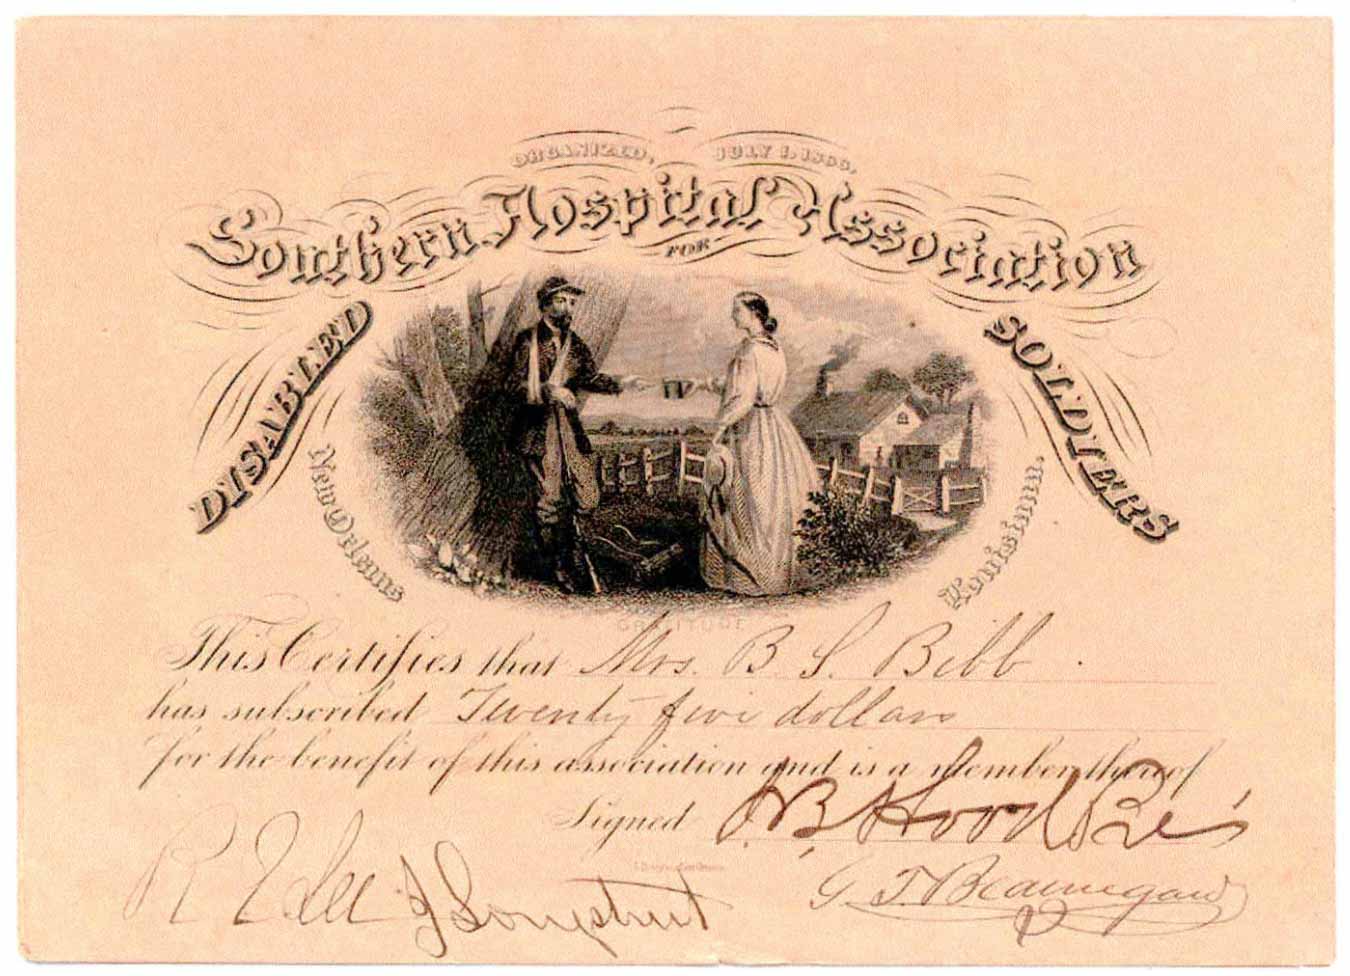 ORGANIZED, JULY 1, 1866,
Southern Hospital Association
FOR
DISABLED SOLDIERS
New Orleans Louisiana.
GRATITUDE
This Certifies that Mrs. B S Bibb
has subscribed Twenty five dollars
for the benefit of this association and is a member thereof
Signed J. B. Hood Pres
R E Lee J Longstreet G. T. Beauregard